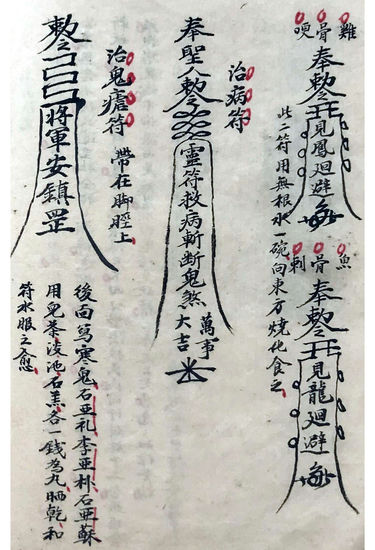 雞骨哽
奉勅
見鳳廻避
魚骨刺
奉勅
見龍廻避
此二符用無根水一碗向東方燒化食之
治病符
奉聖人勅
靈符救病斬断鬼煞
萬事大吉
治鬼瘧符 帶在脚脛上
勅
將軍安鎮罡
後面寫寒鬼石亞礼李亞朴石亞蘇
用兒茶没池石羔各一錢為丸晒乾和
符水服之愈